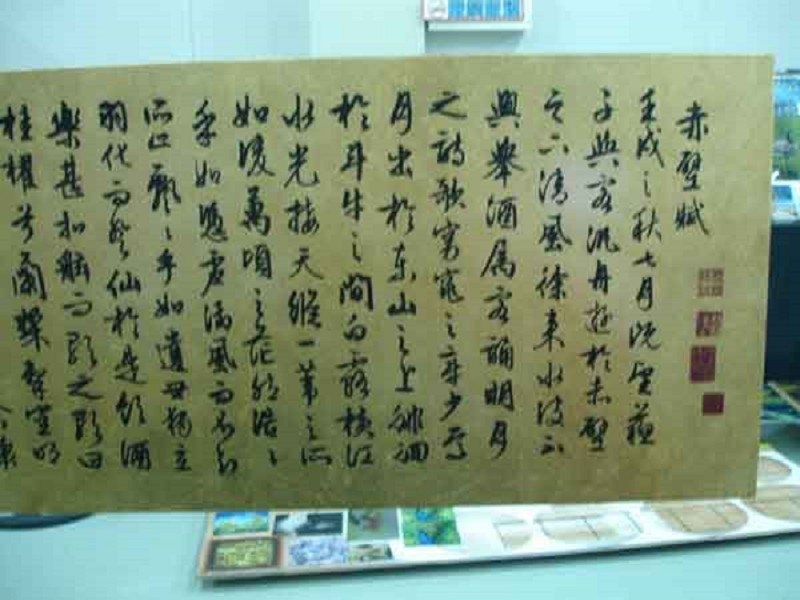 赤壁賦
壬戌之秋七月既望蘇
子與客泛舟遊於赤壁
之下清風徐來水波不
興舉酒屬客誦明月
之詩歌窈窕之章少焉
月出於東山之上徘徊
於斗牛之間白露橫江
水光接天縱一葦之所
如凌萬頃之茫然浩〻
乎如憑虛御風而不知
所止飄〻乎如遺世獨立
羽化而登仙於是飲酒
樂甚扣舷而歌之歌曰
桂櫂兮蘭槳擊空明